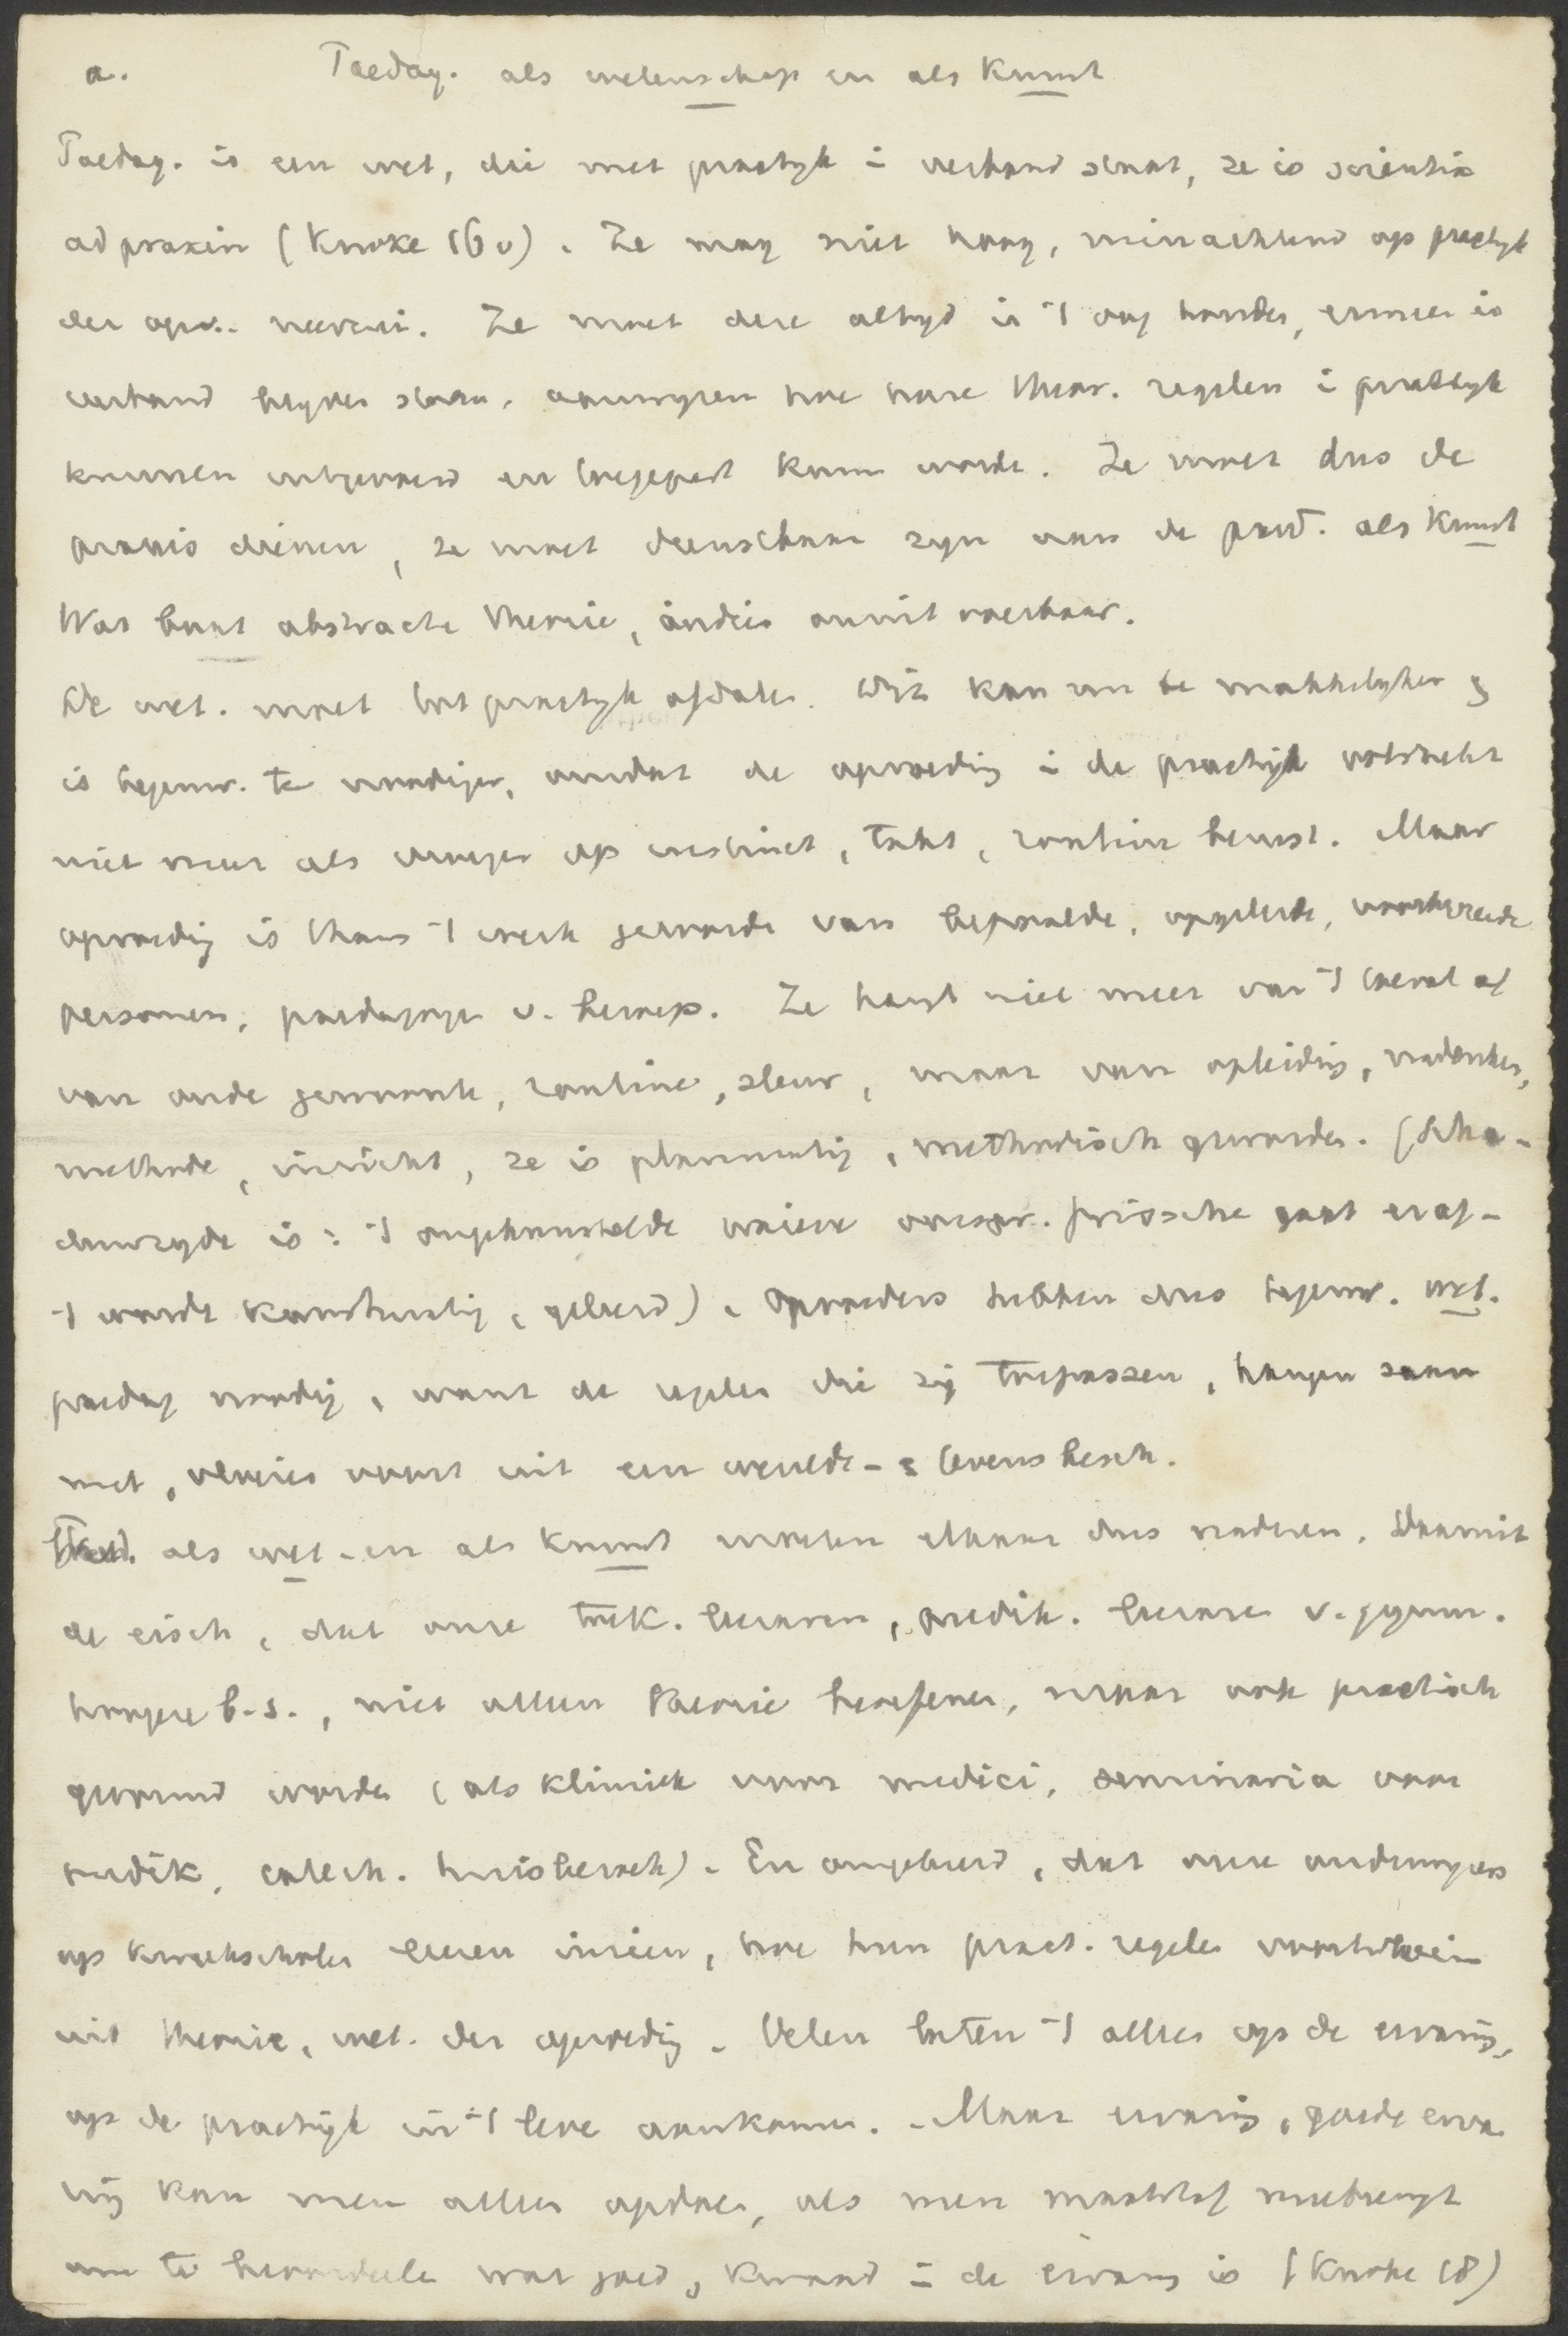 a. Paedag. als wetenschap en als Kunst
Paedag. is een wet, die met practyk in verband staat, ze is scientia
ad praxin (Knoke 16v). Ze mag niet hoog, minachtend op practyk
der opv. neerzien. Ze moet deze altyd in 't oog houden, ermee in
verband blyven staan, aanwyzen hoe hare theor. regelen in practyk
kunnen uitgevoerd en toegepast kunn worde. Ze moet dus de
praxis dienen, ze moet dienstbaar zyn aan de paed. als Kunst
Wat baat abstracte theorie, indien onuitvoerbaar.
De wet. moet tot practyk afdalen. Dit kan nu te makkelyker &
is tegenw. te noodiger, omdat de opvoeding in de practijk volstrekt
niet meer als vroeger op instinct, takt, routine berust. Maar
opvoeding is thans 't werk geworde van bepaalde, opgeleide, voorbereide
personen, paedagoge v. beroep. Ze hangt niet meer van 't toeval af
van oude gewoonte, routine, sleur, maar van opleiding, nadenken,
methode, inzicht, ze is planmatig, methodisch geworden. (Scha-
duwzyde is: 't ongekunstelde naieve oorspr. frissche gaat eraf -
't wordt kunstmatig, geleerd). Opvoeders hebben dus tegenw. wet.
paedag noodig, want de regelen die zij toepassen, hangen saam
met, vloeien voort uit een wereld- & levensbesch.
Paed. als wet- en als kunst moeten elkaar dus naderen. Daaruit
de eisch, dat onze toek. leeraren, predik. leeraren v. gymn.
hoogere b.s., niet alleen theorie beoefenen, maar ook practisch
gevormd worden (als kliniek voor medici, seminaria voor
predik, catech. huisbezoek). En omgekeerd, dat onze onderwyzers
op kweekscholen leeren inzien, hoe hun pract. regelen voortvloeien
uit theorie, wet. der opvoeding. Velen laten 't alles op de ervaring,
op de practijk in 't leve aankomen. - Maar ervaring, goede erva
ring kan men alleen opdoen, als men maatstaf meebrengt
om te beoordeele wat goed, kwaad in de ervaring is (Knoke 18)